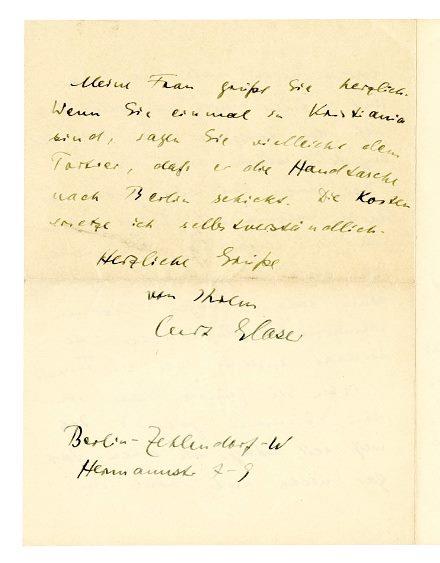 Meine Frau grüßt Sie herzlich.
Wenn Sie einmal in Kristiania
sind, sagen Sie vielleicht dem
Portier, daß er die Handtasche
nach Berlin schickt. Die Kosten
ersetze ich selbstverständlich.
Herzliche Grüße
von Ihrem
Curt Glaser
Berlin-Zehlendorf-W
Hermannstr 7-9